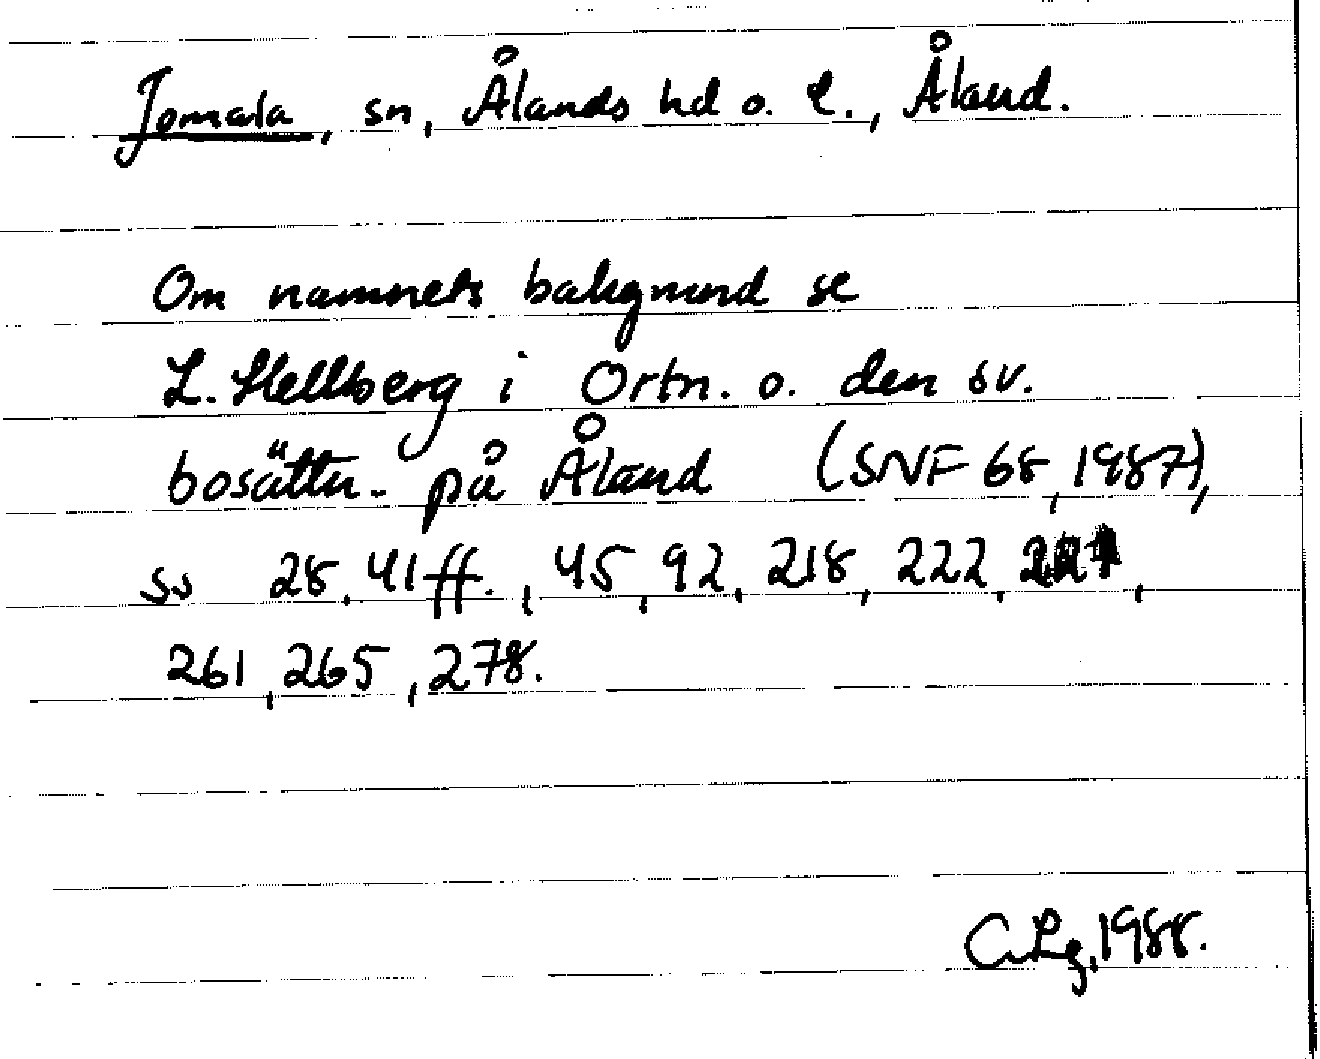 Jomala, sn, Ålands hd o. l., Åland.
Om namnets bakgrund se
L. Hellberg i Ortn. o. den sv.
bosättn. på Åland (SNF 68, 1987),
ss 28, 41 ff., 45, 92, 218, 222,
261, 265, 278.
C. Lg, 1988.